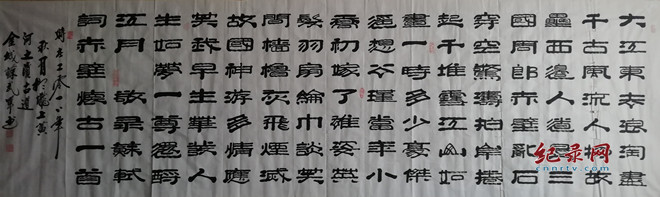 大江東去浪淘盡
千古風流人物故
壘西邊人道是三
國周郎赤壁亂石
穿空驚濤拍岸捲
起千堆雪江山如
畫一時多少豪傑
遙想公瑾當年小
喬初嫁了雄姿英
發羽扇綸巾談笑
間檣櫓灰飛煙滅
故國神游多情應
笑我早生華髮人
生如夢一尊還酹
江月 敬录蘇軾
詞赤壁懷古一首
秋月於隴上黄
河之濱古道
金城
纪录网
cnnrtv.com